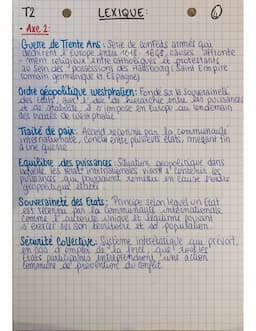 T2 LEXIQUE:
• Axe 2:
Guerre de Trente Ans : Série de conflits armés qui
déchirent l'Europe entre 1618-1648, causes : affronte
-ment religieux entre catholiques et protestants
au sein des possessions des Habsbourg (Saint Empire
romain germanique et Espagne)
Ordre géopolitique westphalien: Fondé sur la souveraineté
des Etats, avec l'idée de hiérarchie entre les puissances
et de stabilité, il s'impose en Europe au lendemain
des traités de Westphalie
Traité de paix: Accord reconnu par la communauté
internationale, conclu entre plusieurs états, mettant fin
à une guerre.
Equilibre des puissances: Situation géopolitique dans
laquelle les relat° internationales visent à
puissances qui pourraient remettre en cause l'ordre
géopolitique établi
Souveraineté des Etats: Principe selon lequel un Etat
est reconnu par la communauté internationale
comme l'autorité unique et légitime pouvant
s'exercer sur son territoire et sa population.
Sécurité Collective: Système interétatique qui prévoit,
en cas d'emploi de la force, que tous les
Etats participants entreprendront une action
commune de prévention du conflit